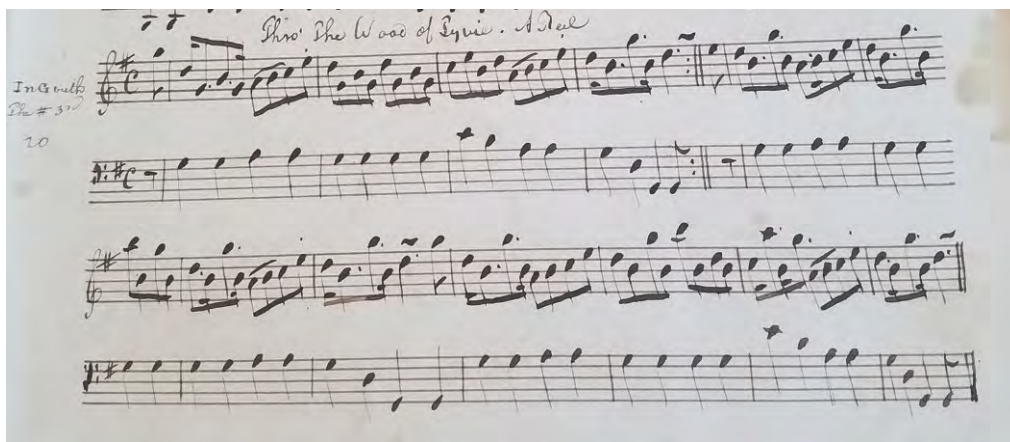 Thro' The Wood of Fyvie. A Reel
In G with
The # 3rd
20